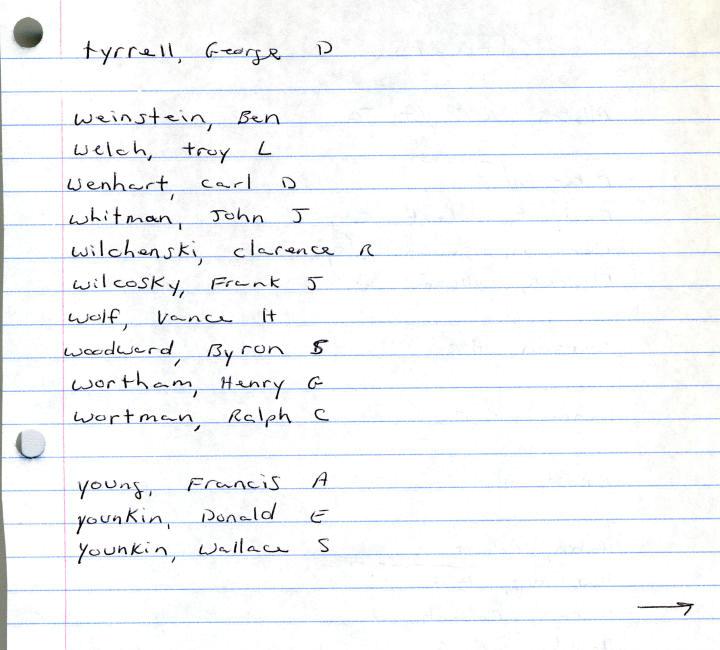 tyrrell, George D
Weinstein, Ben
Welch, troy L
Wenhart, carl D
Whitman, John J
Wilchenski, clarence R
Wilcosky, Frank J
Wolf, Vance H
Woodward, Byron S
Wortham, Henry G
Wortman, Ralph C
Young, Francis A
Younkin, Donald E
Younkin, Wallace S
→